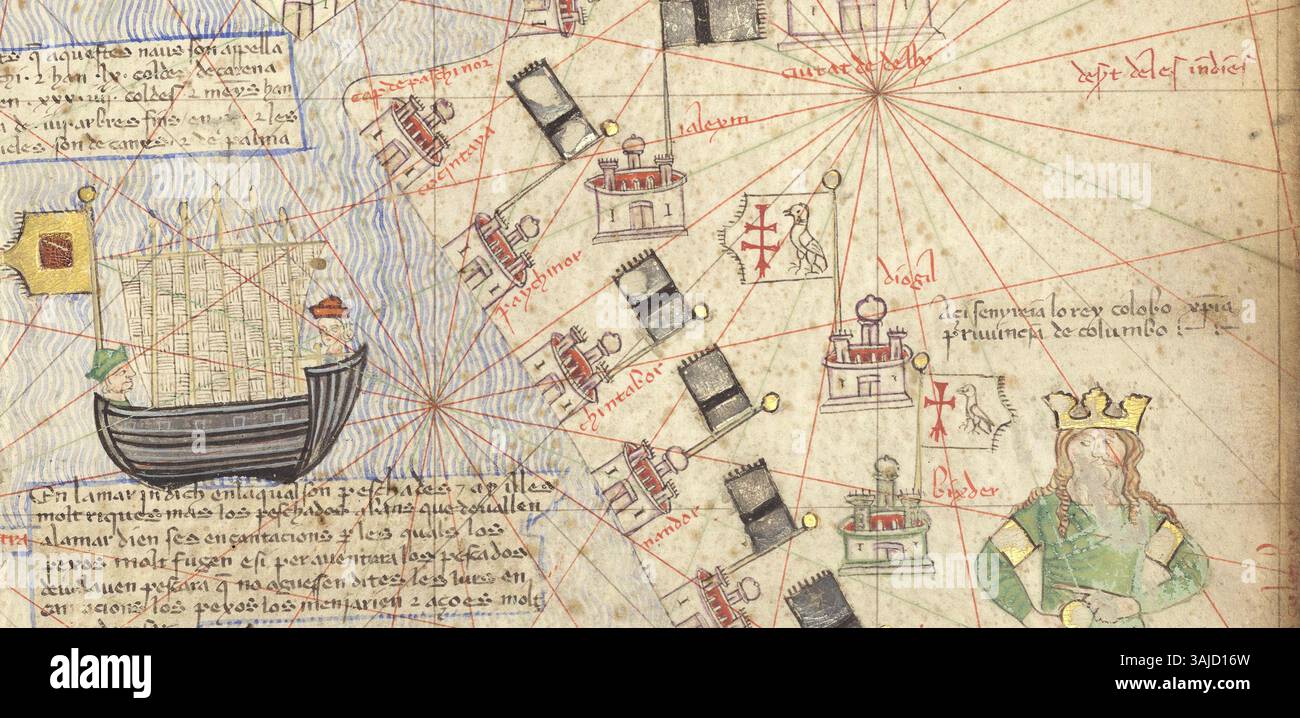 q̄ aquestes naus son apella
.r han .lx. coldes de carena
en .xxxiiii. coldes r meys han
de .iiii. arbres fins en .x. r les
son de canes r de palma
cap de paschinor
ciutat de delly
deſt deles indies
cocintaya
ialeym
paychinor
diogil
Aci senyreia lo rey colobo xp̄ia
priuuincia de columbo
chintabor
bijder
nandor
En lamar indich enlaqual son pescha​des r ay illes
molt riques mas los peschados abans que deuallen
alamar dien ses encantacions per les quals los
pexos molt fugen e si per auentura los pescados
deuallauen pescar q̄ no aguessen dites les lurs en
cantacions los pexos los meniarien r aço es molt
alamy
alamy stock photo
Image ID: 3AJD16W
www.alamy.com